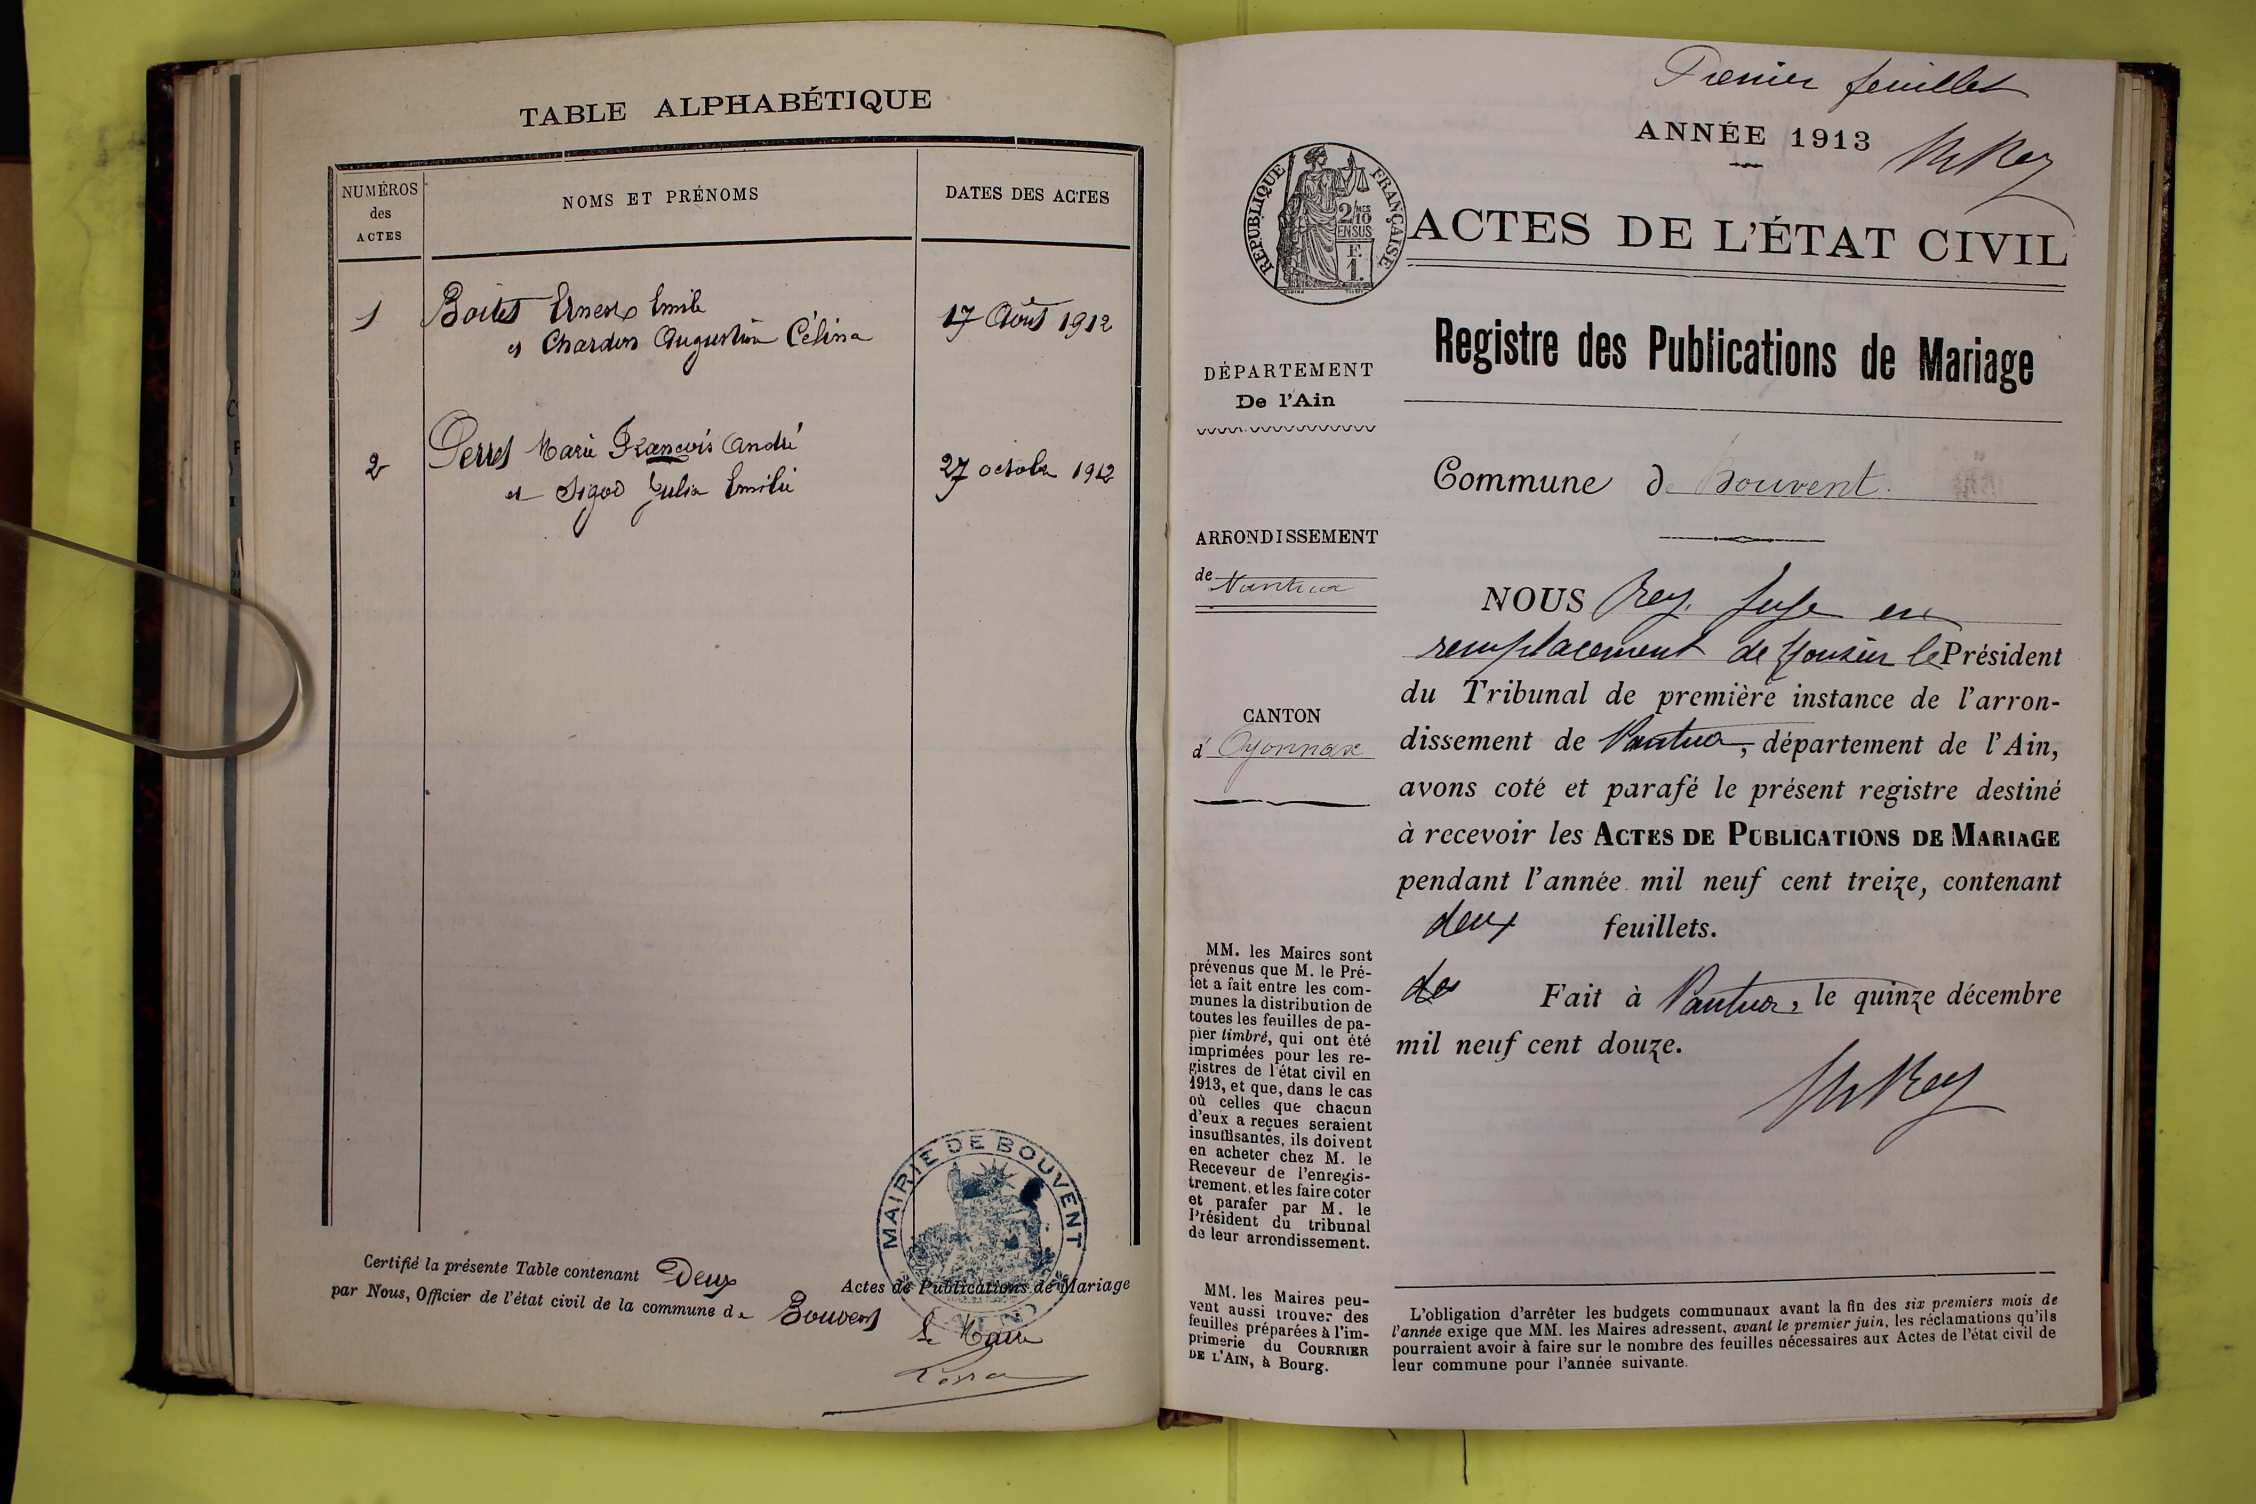 TABLE ALPHABÉTIQUE
NUMÉROS
des
ACTES
NOMS ET PRÉNOMS
DATES DES ACTES
1
Ernest Emile
17 Août 1912
et Chardon Augustine Célina
2
Perret Marie François André
27 octobre 1912
et Sigod Julia Emilie
Certifié la présente Table contenant Deux Actes de Publications de Mariage
par Nous, Officier de l'état civil de la commune de Bouvent
MAIRIE DE BOUVENT
AIN
Le Maire
Premier feuillet
ANNÉE 1913
Rey
RÉPUBLIQUE FRANÇAISE
2/10 MES
EN SUS
F.
1.
ACTES DE L'ÉTAT CIVIL
Registre des Publications de Mariage
DÉPARTEMENT
De l'Ain
Commune de Bouvent.
ARRONDISSEMENT
de Nantua
CANTON
d' Oyonnax
MM. les Maires sont
prévenus que M. le Pré-
fet a fait entre les com-
munes la distribution de
toutes les feuilles de pa-
pier timbré, qui ont été
imprimées pour les re-
gistres de l'état civil en
1913, et que, dans le cas
où celles que chacun
d'eux a reçues seraient
insuffisantes, ils doivent
en acheter chez M. le
Receveur de l'enregis-
trement, et les faire coter
et parafer par M. le
Président du tribunal
de leur arrondissement.
MM. les Maires peu-
vent aussi trouver des
feuilles préparées à l'im-
primerie du COURRIER
DE L'AIN, à Bourg.
NOUS Rey, Juge en
remplacement de Monsieur le Président
du Tribunal de première instance de l'arron-
dissement de Nantua, département de l'Ain,
avons coté et parafé le présent registre destiné
à recevoir les ACTES DE PUBLICATIONS DE MARIAGE
pendant l'année mil neuf cent treize, contenant
deux feuillets.
Fait à Nantua, le quinze décembre
mil neuf cent douze.
Rey
L'obligation d'arrêter les budgets communaux avant la fin des six premiers mois de
l'année exige que MM. les Maires adressent, avant le premier juin, les réclamations qu'ils
pourraient avoir à faire sur le nombre des feuilles nécessaires aux Actes de l'état civil de
leur commune pour l'année suivante.